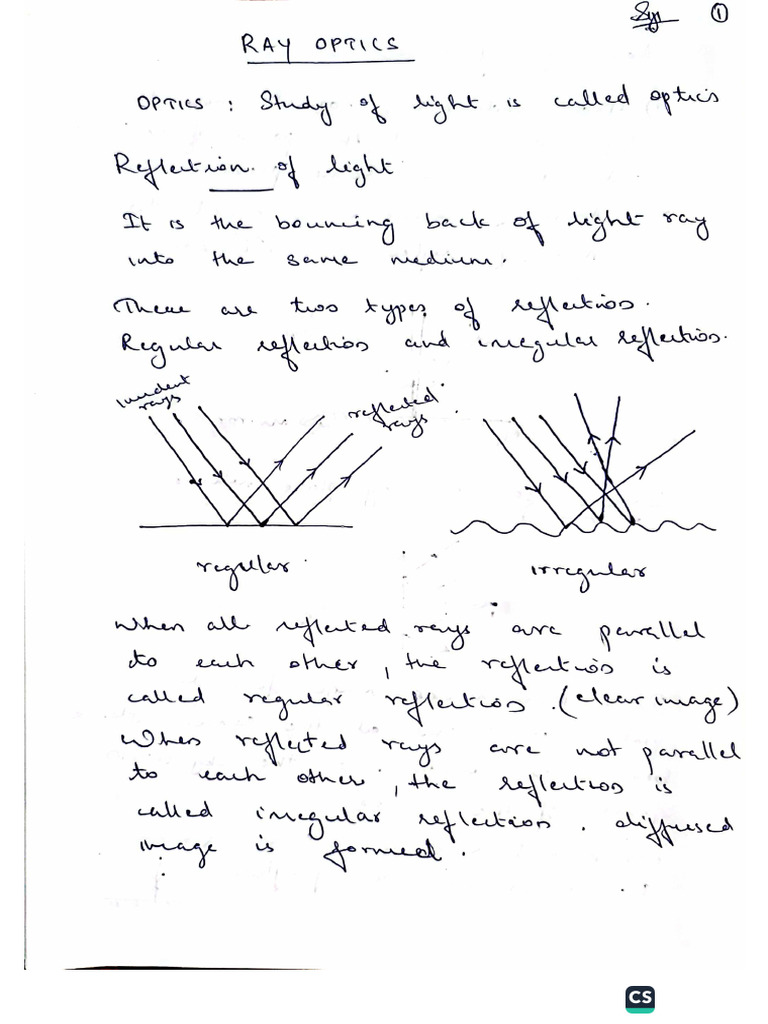 ①
RAY OPTICS
OPTICS : Study of light is called optics
Reflection of light
It is the bouncing back of light ray
into the same medium.
There are two types of reflection.
Regular reflection and irregular reflection.
incident
rays
reflected
rays
regular
irregular
When all reflected rays are parallel
to each other, the reflection is
called regular reflection. (clear image)
When reflected rays are not parallel
to each other, the reflection is
called irregular reflection. diffused
image is formed.
CS